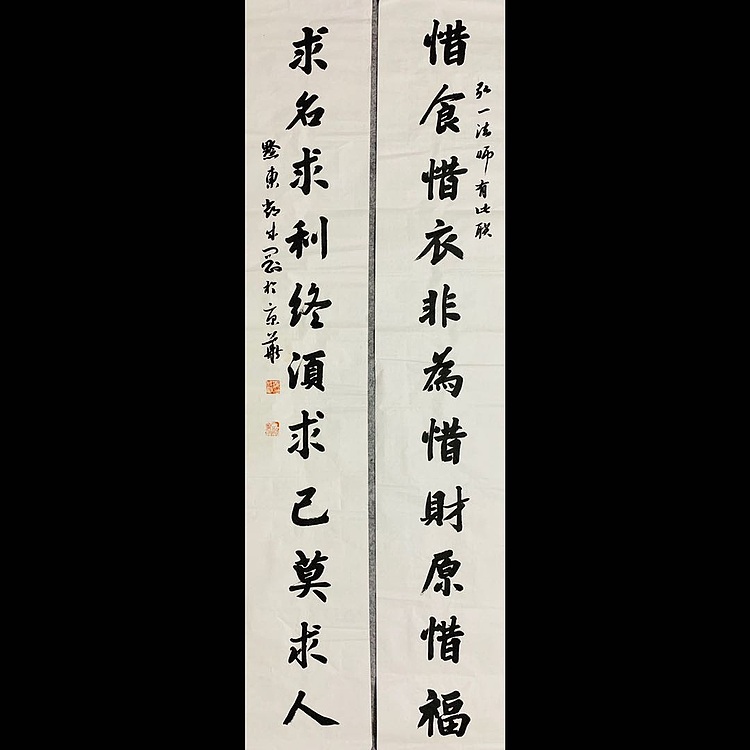 弘一法师有此联
惜食惜衣非為惜財原惜福
求名求利終須求己莫求人
黔東 於京華